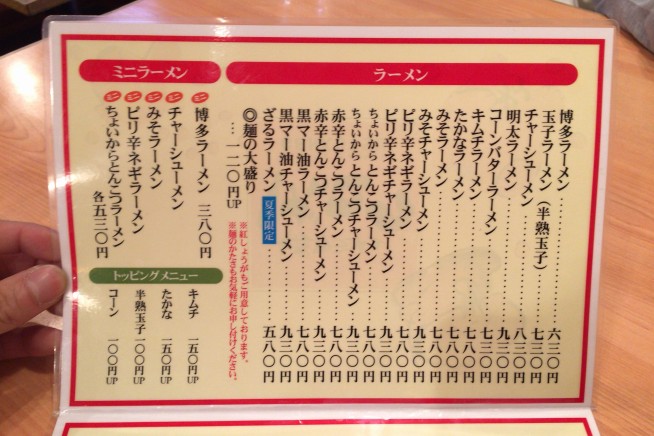 ラーメン
博多ラーメン 六三〇円
玉子ラーメン(半熟玉子) 七三〇円
チャーシューメン 八三〇円
明太ラーメン 九三〇円
コーンバターラーメン 七三〇円
キムチラーメン 七八〇円
たかなラーメン 七八〇円
みそラーメン 七八〇円
みそチャーシューメン 九三〇円
ピリ辛ネギラーメン 七八〇円
ピリ辛ネギチャーシューメン 九三〇円
ちょいからとんこつラーメン 七八〇円
ちょいからとんこつチャーシューメン 九三〇円
赤辛とんこつラーメン 七八〇円
赤辛とんこつチャーシューメン 九三〇円
黒マー油ラーメン 七八〇円
黒マー油チャーシューメン 九三〇円
ざるラーメン 夏季限定 五八〇円
◎麺の大盛り
…一二〇円UP
※紅しょうがもご用意しております。
※麺のかたさもお気軽にお申し付けください。
ミニラーメン
ミニ 博多ラーメン 三八〇円
ミニ チャーシューメン
ミニ みそラーメン
ミニ ピリ辛ネギラーメン
ミニ ちょいからとんこつラーメン
各五三〇円
トッピングメニュー
キムチ 一五〇円UP
たかな 一五〇円UP
半熟玉子 一〇〇円UP
コーン 一〇〇円UP